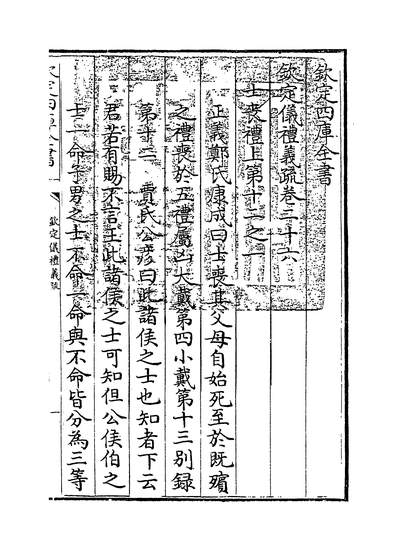 欽定四庫全書
欽定儀禮義疏卷二十六
士喪禮上第十二之一
正義鄭氏康成曰士喪其父母自始死至於既殯
之禮喪於五禮屬凶大戴第四小戴第十三別錄
第十二 賈氏公彥曰此諸侯之士也知者下云
君若有賜不言王此諸侯之士可知但公侯伯之
士一命子男之士不命一命與不命皆分為三等
欽定儀禮義疏
一